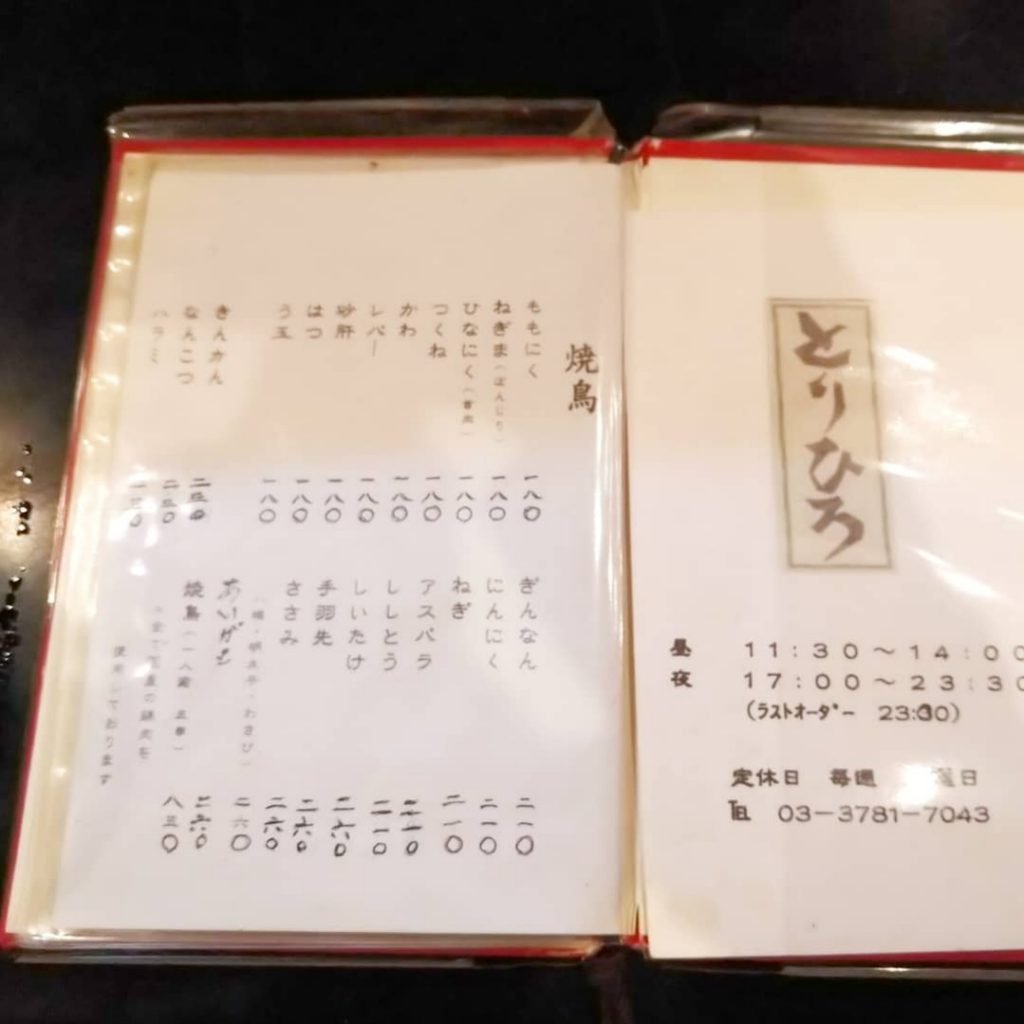 とりひろ
昼 11:30～14:00
夜 17:00～23:30
(ラストオーダー 23:00)
定休日 毎週 曜日
TEL 03-3781-7043
焼鳥
ももにく 一八〇
ねぎま(ぼんじり) 一八〇
ひなにく(首肉) 一八〇
つくね 一八〇
かわ 一八〇
レバー 一八〇
砂肝 一八〇
はつ 一八〇
う玉 一八〇
きんかん
なんこつ
ハラミ
ぎんなん 二一〇
にんにく 二一〇
ねぎ 二一〇
アスパラ
ししとう 二一〇
しいたけ 二六〇
手羽先 二六〇
ささみ 二六〇
(梅・明太子・わさび) 二六〇
あいがも
焼鳥
使用しております
八三〇